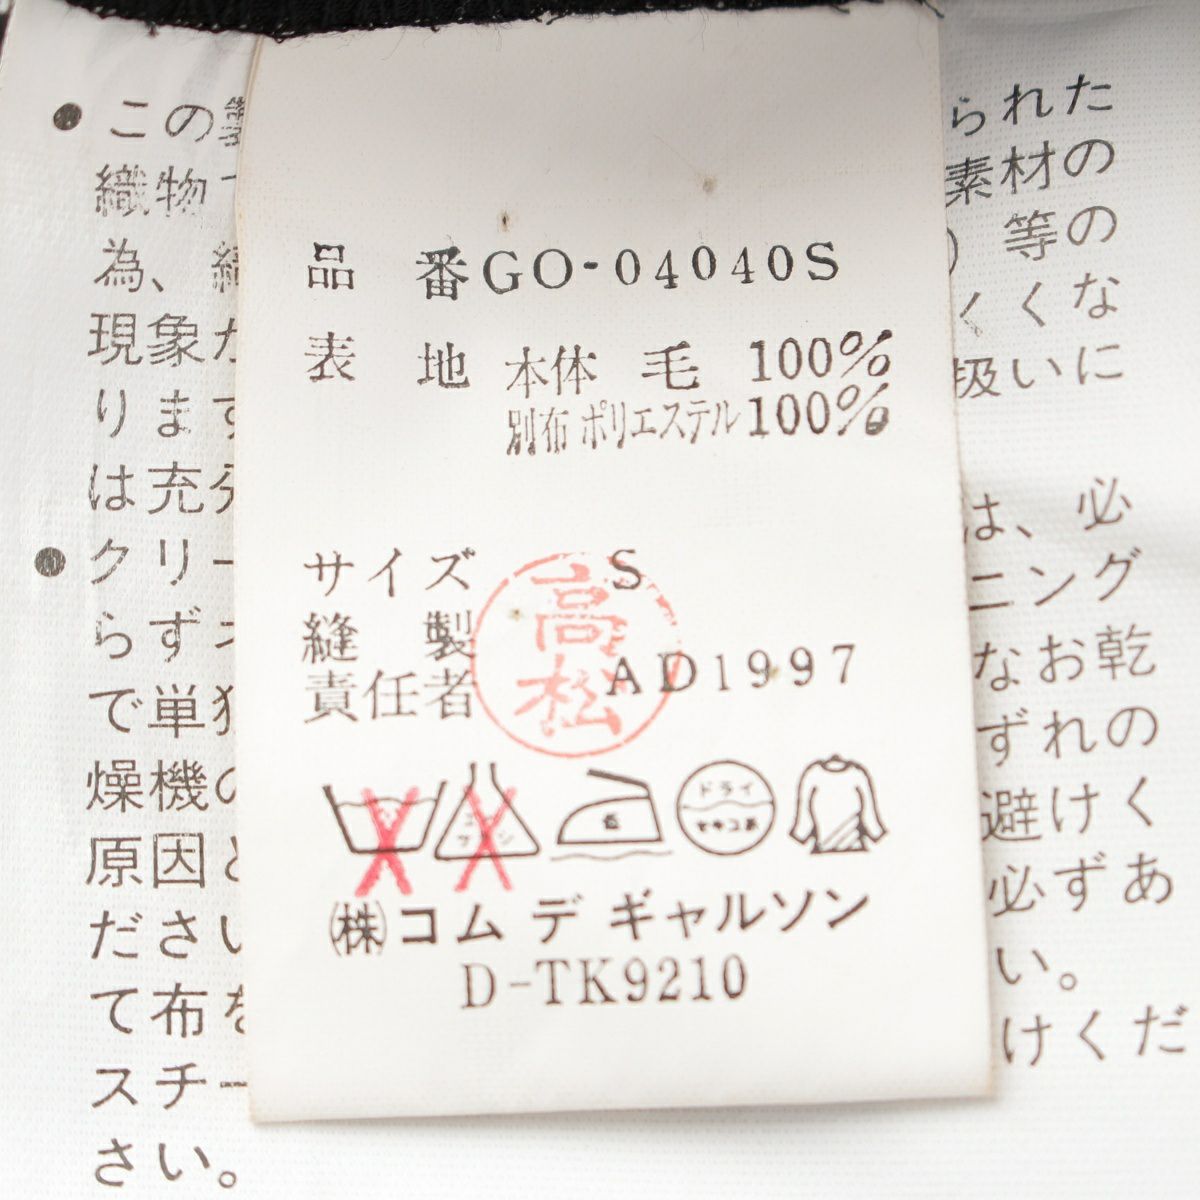 品 番 GO-04040S
表 地 本体 毛 100%
別布 ポリエステル 100%
サイズ S
縫 製
責任者 AD1997
高松
ドライ
セキユ系
㈱コム デ ギャルソン
D-TK9210
● この製
織物
為、
現象が
ります
は充分
● クリー
らず
で単独
燥機の
原因と
ださい
て布を
スチー
さい。
られた
素材の
) 等の
くくな
扱いに
は、必
ニング
なお乾
ずれの
避けく
必ずあ
い。
けくだ